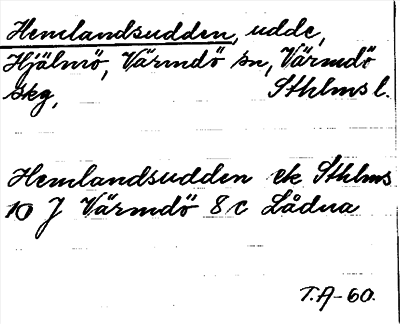 Hemlandsudden, udde,
Hjälmö, Värmdö sn, Värmdö
skg, Sthlms l.
Hemlandsudden ek Sthlms
10 J Värmdö 8 c Lådna
T.A-60.